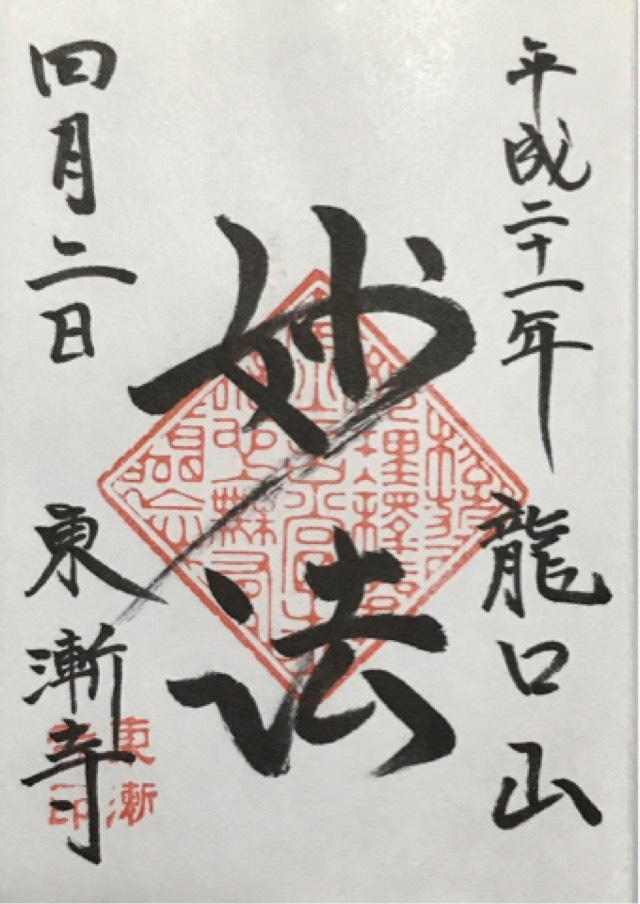 平成二十一年 龍口山
妙法
四月二日 東漸寺
東漸
寺印